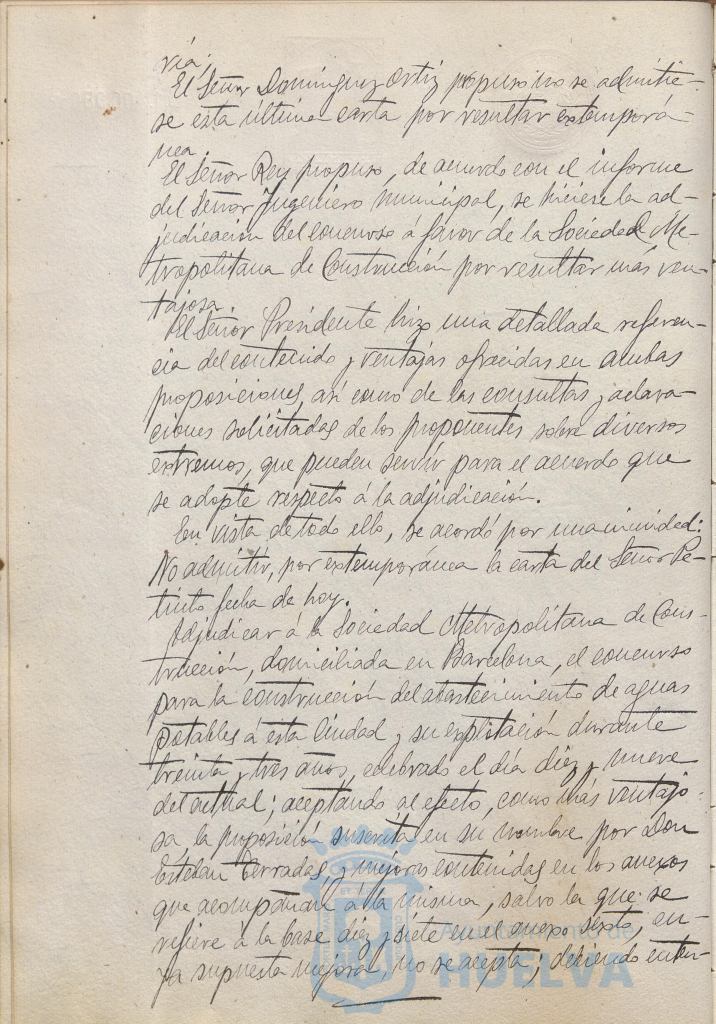 vía.
El Señor Dominguez Ortiz propuso no se admitie-
se esta última carta por resultar extemporá-
nea.
El Señor Rey propuso, de acuerdo con el informe
del Señor Ingeniero Municipal, se hiciese la ad-
judicación del concurso á favor de la Sociedad Me-
tropolitana de Construcción por resultar más ven-
tajosa.
El Señor Presidente hizo una detallada referen-
cia del contenido y ventajas ofrecidas en ambas
proposiciones, así como de las consultas y aclara-
ciones solicitadas de los proponentes sobre diversos
extremos, que pueden servir para el acuerdo que
se adopte respecto á la adjudicación.
En vista de todo ello, se acordó por unanimidad:
No admitir, por extemporánea la carta del Señor Pe-
tinto fecha de hoy.
Adjudicar á la Sociedad Metropolitana de Cons-
trucción, domiciliada en Barcelona, el concurso
para la construcción del abastecimiento de aguas
potables á esta Ciudad y su explotación durante
treinta y tres años, celebrado el día diez y nueve
del actual; aceptando al efecto, como más ventajo-
sa la proposición suscrita en su nombre por Don
Esteban Terradas, y mejoras contenidas en los anexos
que acompañan á la misma, salvo la que se
refiere á la base diez y siete en el anexo sexto, cu-
ya supuesta mejora, no se acepta; debiendo enten-
Ayuntamiento de
HUELVA